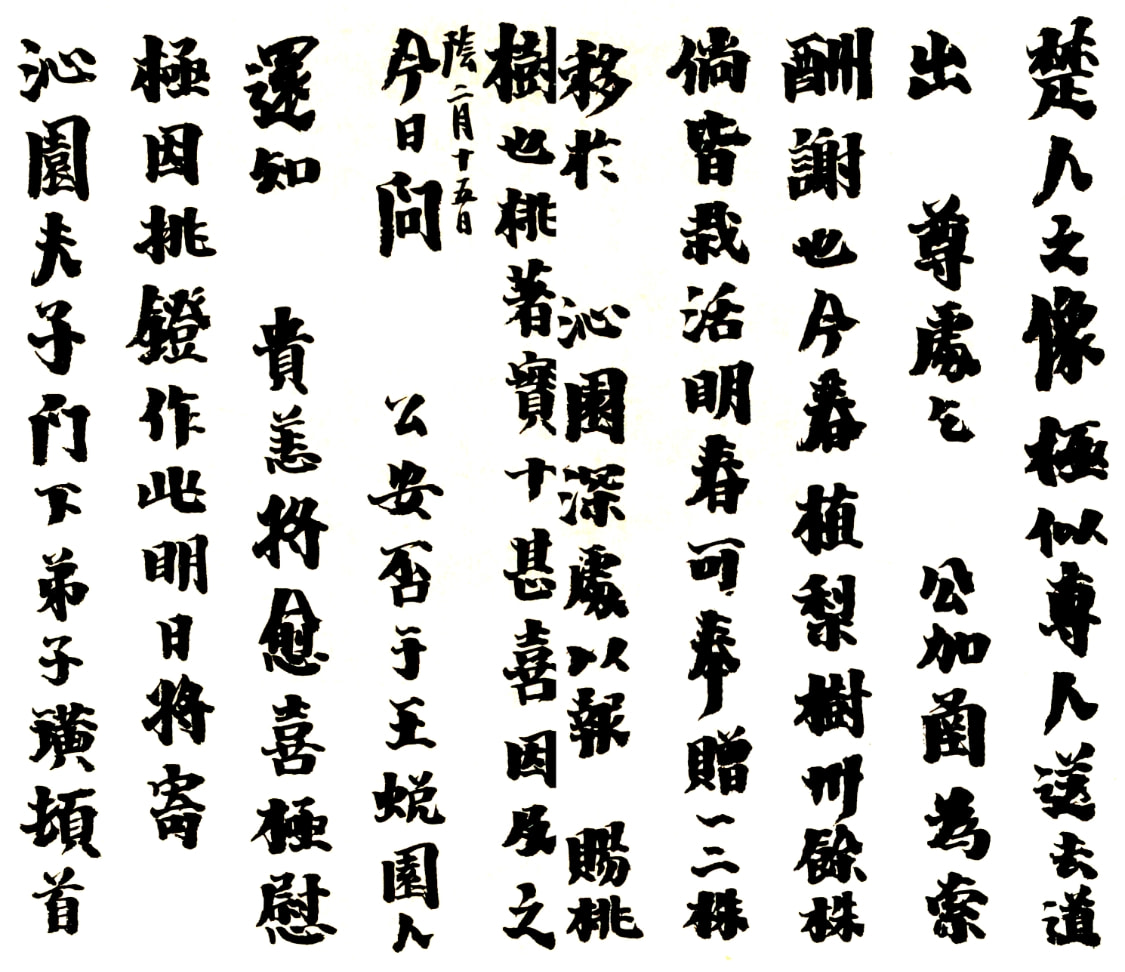 楚人之像極似尊人送去道
出 尊處乞 公加函為索
酬謝也今春植梨樹卅餘株
倘皆栽活明春可奉贈一二株
移於 沁園深處以報 賜桃
樹也桃著實十甚喜因及之
陰二月十五日
今日問 公安否于王蜕園人
還知 貴恙將愈喜極慰
極因挑鐙作此明日將寄
沁園夫子门下弟子璜頓首